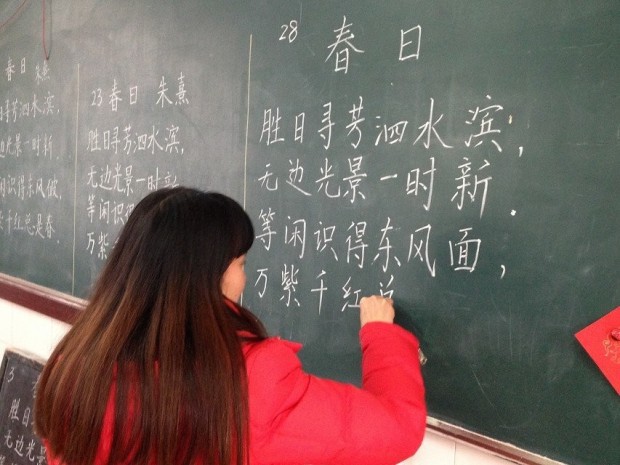 春日 朱熹
寻芳泗水滨,
边光景一时新
识得东风
千红总是春.
23 春日 朱熹
胜日寻芳泗水滨,
无边光景一时新
等闲识
万紫
28 春日
胜日寻芳泗水滨,
无边光景一时新.
等闲识得东风面,
万紫千红
3
胜日
无边光